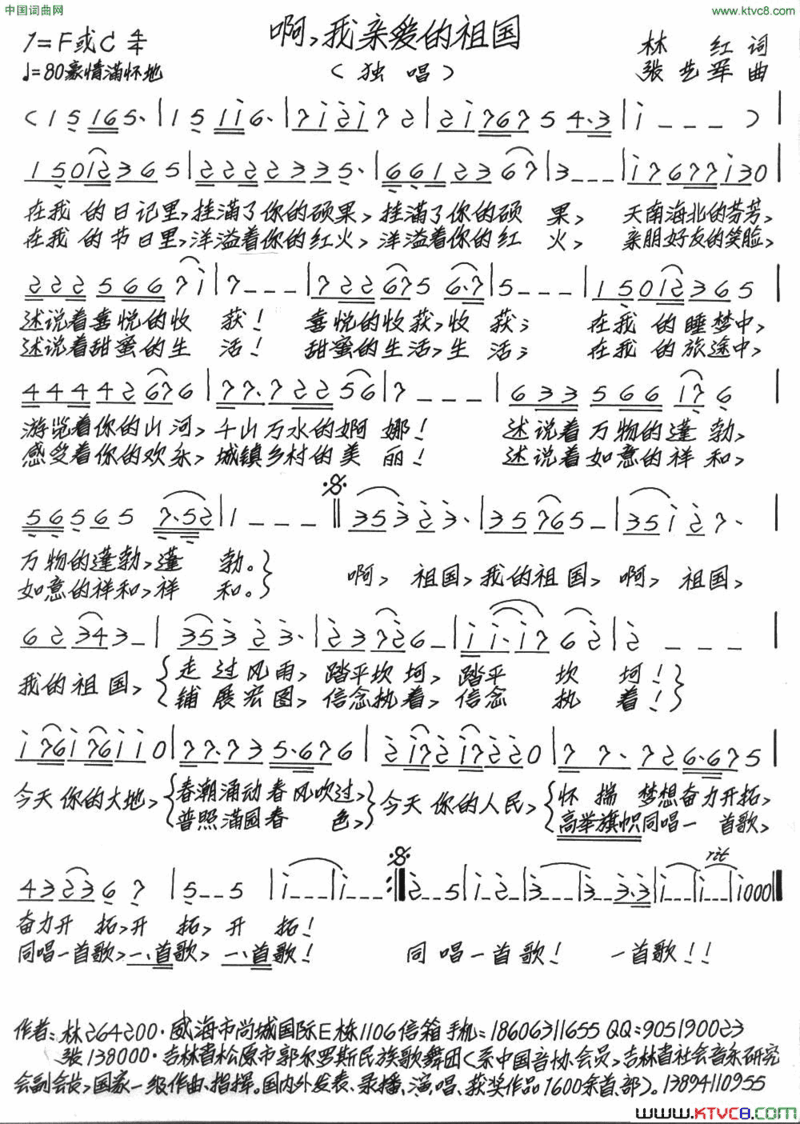 中国词曲网
www.ktvc8.com
啊,我亲爱的祖国
1=F或C 4/4
♩=80豪情满怀地
(独唱)
林 红 词
张艺军 曲
(1 5 165· | 15 1i6· | 7i2i72 | 2i76754·3 | i - - - ) |
15012365 | 2222335· | 66123 67 | 3 - - - | i7677i30 |
在我 的日记里,挂满了你的硕果,挂满了你的硕 果, 天南海北的芬芳,
在我 的节日里,洋溢着你的红火,洋溢着你的红 火, 亲朋好友的笑脸,
222566 7i | 7 - - - | 722675 6·7 | 5 - - - | 15012365 |
述说着喜悦的收 获! 喜悦的收获,收 获; 在我 的睡梦中,
述说着甜蜜的生 活! 甜蜜的生活,生 活; 在我 的旅途中,
44442676 | 77·72256 | 7 - - - | 633566 17 6 |
游览着你的山河,千山万水的婀 娜! 述说着万物的蓬 勃,
感受着你的欢乐,城镇乡村的美 丽! 述说着如意的祥 和,
56565 7·52 | 1 - - - ‖ 353 23· | 35765 - | 35i 27· |
万物的蓬勃,蓬 勃。}
如意的祥和,祥 和。}
啊, 祖国,我的祖国,啊, 祖国,
62343 - | 353 23· | 23726· | ii·i7 62 | 2 - - - |
我的祖国,
{走 过风雨, 踏平坎 坷, 踏平 坎 坷!}
{铺 展宏图, 信念执着, 信念 执 着!}
i76i76ii0 | 77·735·676 | 2i72i7220 | 7 7·726·675 |
今天 你的大地,
{春潮涌动春风吹过,}
{普照满园春 色,}
今天 你的人民,
{怀 揣 梦想奋力开拓,
{高举旗帜同唱一 首歌,
432367 | 5 - - 5 | i - - - | i - - - :‖ 2 - - 5 | i - 2 - | 3 - - - | 3 - - 3·3 | i - - - | i - - - | i000 ‖
rit
奋力开 拓,开 拓,开 拓!
同唱一首歌,一、首歌,一、首歌! 同 唱一首歌! 一首歌!!
作者:林264200·威海市尚城国际E栋1106信箱手机:18606311655 QQ:905190023
张138000·吉林省松原市郭尔罗斯民族歌舞团(系中国音协会员,吉林省社会音乐研究
会副会长,国家一级作曲、指挥。国内外发表、录播、演、唱、获奖作品1600余首、部)。13894110955
www.KTVC8.com